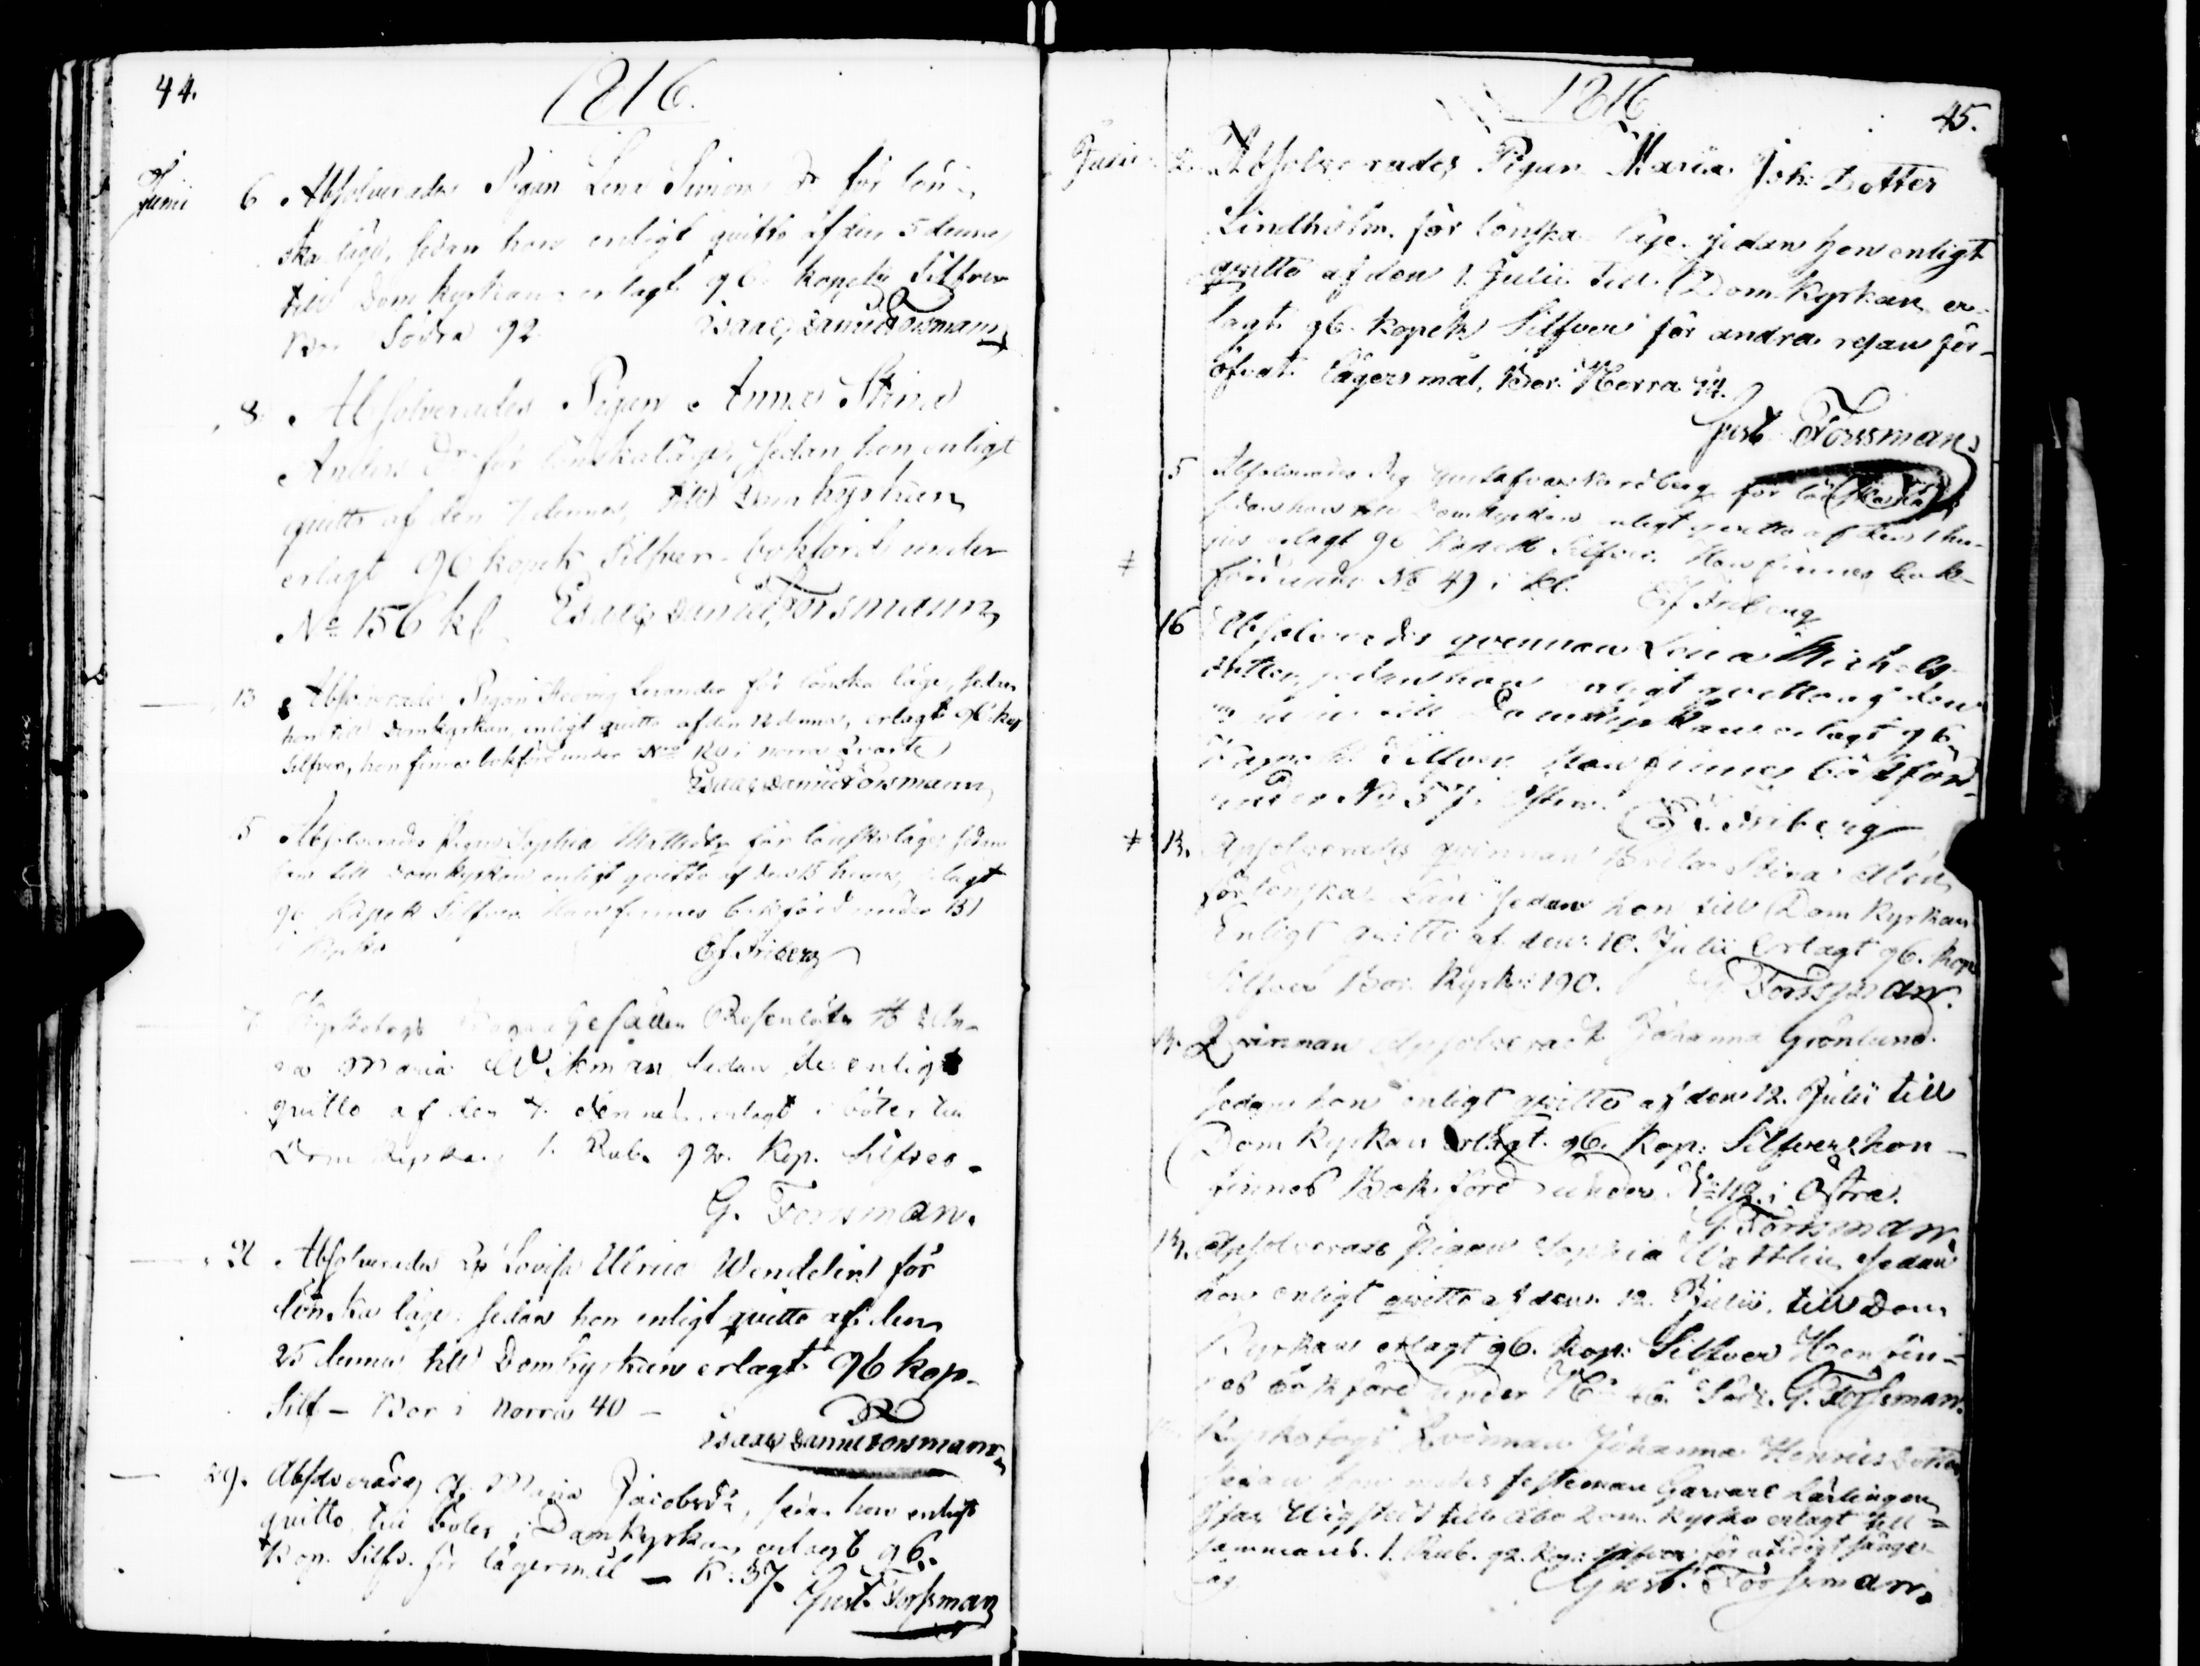 44.
1816.
Junii 6 Absolverades Pigan Lena Simons dr för lön-
ska läge, sedan hon enligt quitto af den 5 dennes
till Domkyrkan erlagt 96 kopek Silfver
Bor Södra 92. Isaac Daniel Forsmann
8 Absolverades Pigan Anna Stina
Anders dr för lönskaläge, sedan hon enligt
quitto af den 7 dennes, till Domkyrkan
erlagt 96 kopek Silfver - bokförd under
No 156 kl Isaac Daniel Forsmann
13 Absolverades Pigan Hedvig Levander för lönska läge, sedan
hon till Domkyrkan, enligt quitto af den 12 dennes, erlagt 96 kop
Silfver, hon finnes bokförd under No 120 i norra Qvarte
Isaac Daniel Forsmann
5 Absolverades Pigan Sophia för lönskaläge, sedan
hon till Domkyrkan enligt quitto af den 15 erlagt
96 Kopek Silfver. Hon finnes bokförd under 131
i Kyrko Ef Friberg
Kyrkotogs Gesällen
Maria Wikman sedan de enligt
quitto af den 7. dennes erlagt i böter till
Dom Kyrkan 1. Rub. 92. Kop. Silfver.
G. Forssman.
Absolverades Lovisa Ulrica Wendelin för
lönska läge, sedan hon enligt quitto af den
25 dennes till Domkyrkan erlagt 96 kop.
Silf - Bor i norra 40 -
Isaac Daniel Forsmann
29. Absolverades Maria Jacobsdr, sedan hon enligt
quitto, till böter i Domkyrkan erlagt 96.
Kop. Silfv. för lägersmål - K: 37.
Gust. Forssman
1816
45.
Julii 2. Absolverades Pigan Maria Joh: Dotter
Lindholm. för lönska läge. sedan hon enligt
qvitto af den 1. Julii till Dom Kyrkan er-
lagt 96. kopek Silfver för andra resan för-
öfvat Lägersmål, Bor. Norra 44.
Gust Forssman
5 Absolverades Pig Nordberg för lönskaläge
sedan hon till Domkyrkan enligt quitto af den 1 hu-
jus erlagt 96 Kopek Silfver. Hon finnes bok-
förd under No 49 i kl. Ef Friberg
16 Absolverades qvinnan Lena Michels-
dotter, sedan hon enligt qvitto af den
till Domkyrkan erlagt 96
Kopek Silfver. Hon finnes bokförd
under No 57 i Östra. Ef. Friberg
13. Apsolverades qvinnan Brita Stina Alen
för lönska läge sedan hon till Dom Kyrkan
Enligt quitto af den 10. Julii Erlagt 96. kop
Silfver Bor. Kyrko: 190. G Forssman.
13. Qvinnan Apsolverad Johanna Grönlund.
sedan hon enligt qvitto af den 12. Julii till
Dom Kyrkan Erlagt. 96. Kop: Silfver hon
finnes Bokförd under No 119. i Östra.
G. Forssman.
13. Apsolverade Pigan Sophia Wattlin, sedan
hon enligt qvitto af den 12. Julii. till Dom
Kyrkan erlagt 96. kop: Silfver Hon fin-
nes bokförd under No 46. Söd. G. Forssman.
Kyrkotogs Qvinnan Johanna Henrics Dotter
sedan hon med festeman Garvare Lärlingen
till Åbo Dom Kyrka erlagt till-
sammans. 1. Rub. 92. Kop: Silfver för otidigt sänge-
lag Gust. Forssman.